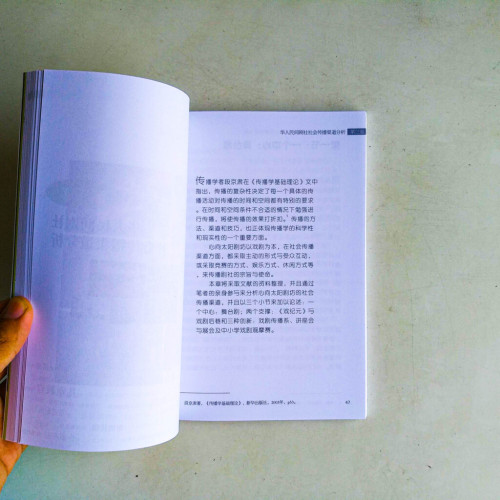 华人戏剧社社会传播渠道分析
传播学者段京肃在《传播学基础理论》文中
指出，传播的复杂性决定了每一个具体的传
播活动对传播的时间和空间都有特别的要求
。在时间和空间条件不合适的情况下勉强进
行传播，将使传播的效果打折扣。传播的方
法、渠道和技巧，也正体现传播学的科学性
和现实性的一个重要方面。
心向太阳剧坊以戏剧为本，在社会传播
渠道方面，都采用主动的形式与受众互动，
或采用竞赛的方式、娱乐方式、休闲方式等
，来传播剧社的宗旨与使命。
本章将采用文献的资料整理，并且通过
笔者的亲身参与来分析心向太阳剧坊的社会
传播渠道，并且以三个小节来加以论述：一
个中心，舞台剧；两个支撑：《戏纪元》与
戏剧后巷和三种创新、戏剧传播系、讲座会
与展会及中小学戏剧观摩赛。
段京肃著，《传播学基础理论》，新华出版社，2003年，
67